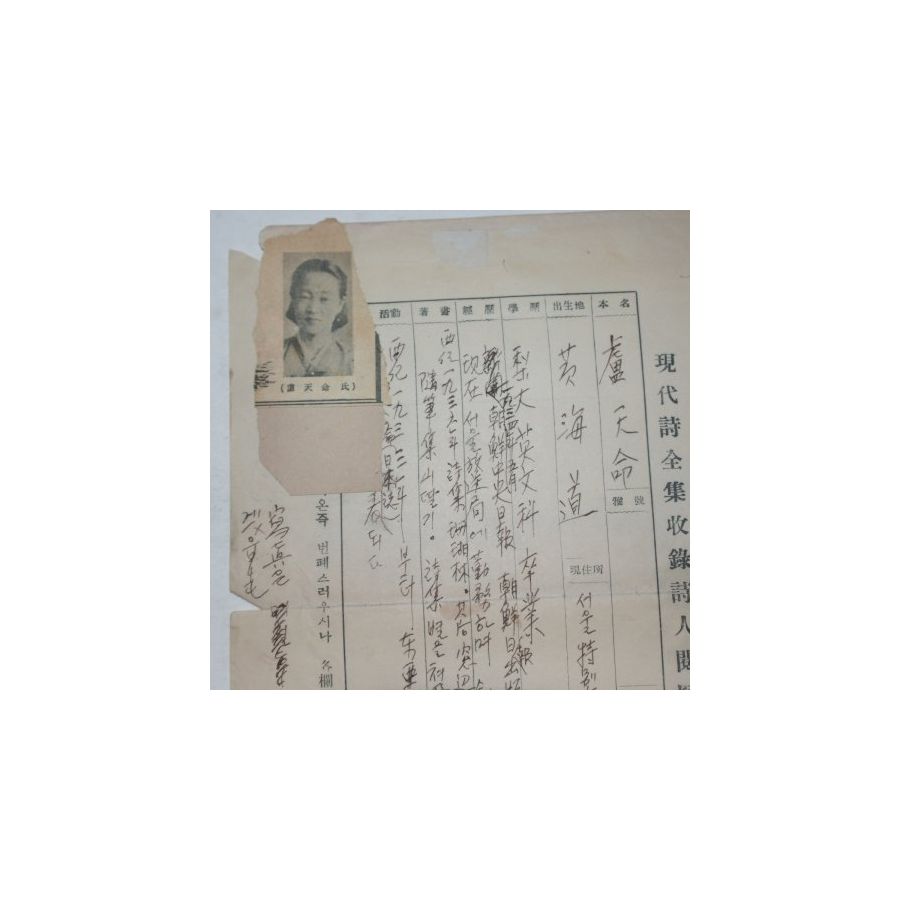 現代詩全集收錄詩人閱
本名
盧天命
雅號
出生地
黃海道
現住所
서울特別
學歷
梨大英文科卒業
經歷
朝鮮中央日報 朝鮮日報
現在 서울放送局에 勤務하며
著書
西紀一九三八年 詩集 珊瑚林。其后 窓辺
隨筆集 山딸기。 詩集 별을 쳐
活動
西紀一九三二年부터 東亞
日本誌
表되다
온즉 번폐스러우시나 各欄
寫眞은
(盧天命氏)